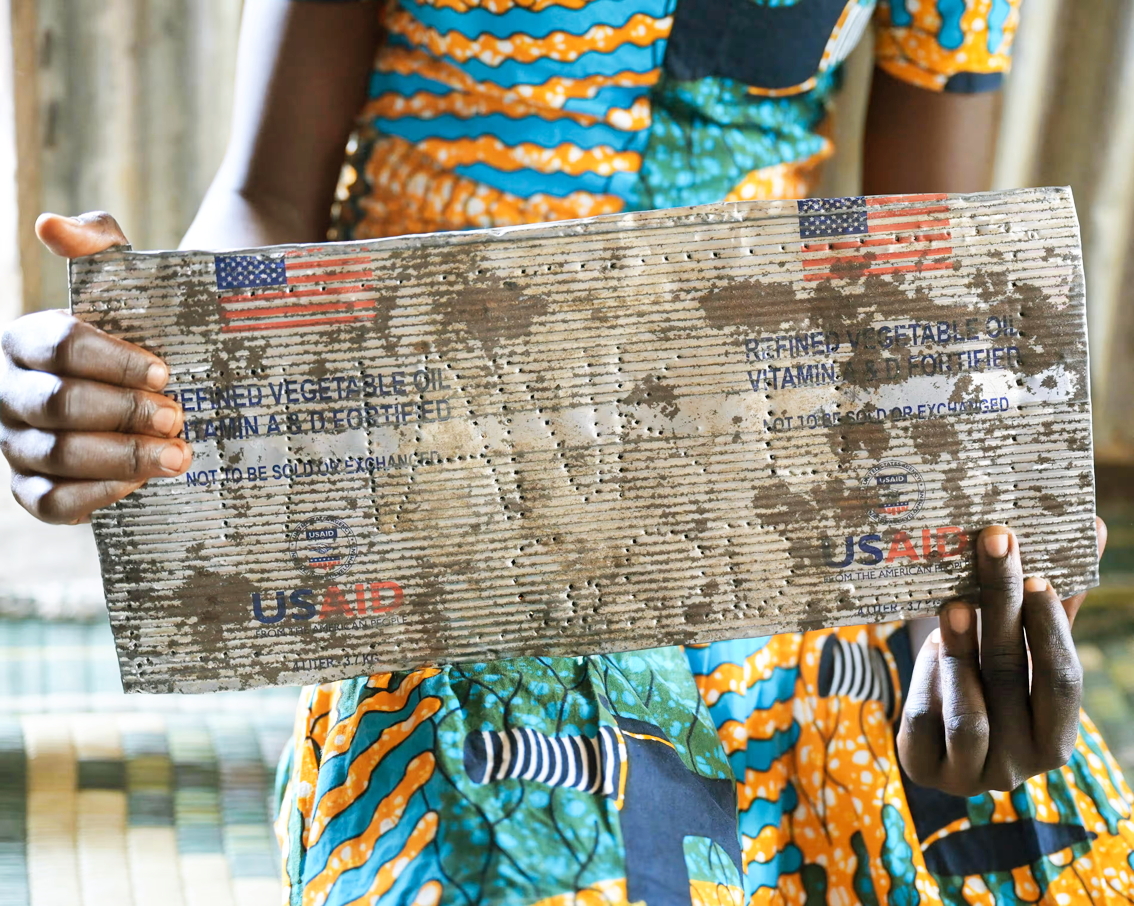 EFINED VEGETABLE OIL
ITAMIN A & D FORTIFIED
NOT TO BE SOLD OR EXCHANGED
USAID
USAID
FROM THE AMERICAN PEOPLE
4 LITER - 3.7 KG
REFINED VEGETABLE OIL
VITAMIN A & D FORTIFIED
NOT TO BE SOLD OR EXCHANGED
USAID
USAID
FROM THE AMERICAN PEOPL
4 LITER - 3.7